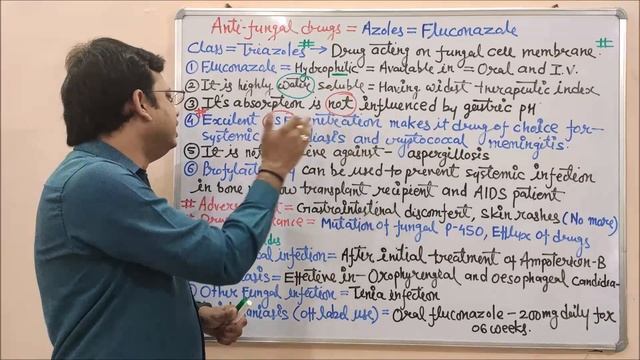 Anti-fungal drugs = Azoles = Fluconazole
Class = Triazoles # → Drug acting on fungal cell membrane. #
① Fluconazole = Hydrophilic = Available in = Oral and I.V.
② It is highly water soluble = Having widst therapeutic index
③ It's absorption is not influenced by gastric pH
# ④ Excellent penetration makes it drug of choice for-
systemic and cryptococcal meningitis.
⑤ It is not against - aspergillosis
⑥ can be used to prevent systemic infection
in bone transplant recipient and AIDS patient
# = Gastrointesteral discomfert, skin rashes (No more)
# = Mutation of fungal P-450, Efflux of drugs
infection = After initial treatment of Ampotericn-B
= Effective in - Orophyrngeal and oesophageal candidia-
Other Fungal infection = Tenia infection
(off label use) = Oral fluconazole - 200mg daily for
06 weeks.